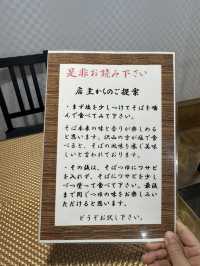 是非お読み下さい
店主からのご提案
・まず塩を少しつけてそばを噛
んで食べてみて下さい。
そば本来の味と香りが楽しめると思います。沢山の方が塩で食
べると、そばの風味を楽し美味
しいと言われております。
・その後は、そばつゆにワサビ
を入れず、そばにワサビを少し
づつ塗って食べて下さい。最後
まで同じつゆの味をお楽しみい
ただけると思います。
どうぞお試し下さい。